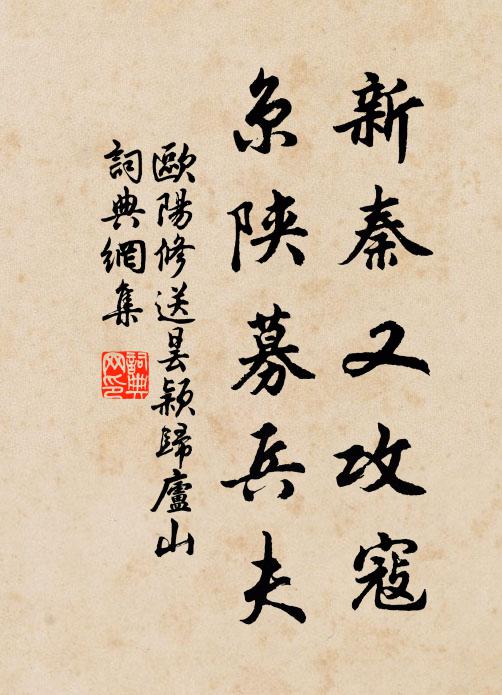 新秦又攻寇
京陝募兵夫
歐陽修送曇穎歸廬山
詞典網集
詞典网印